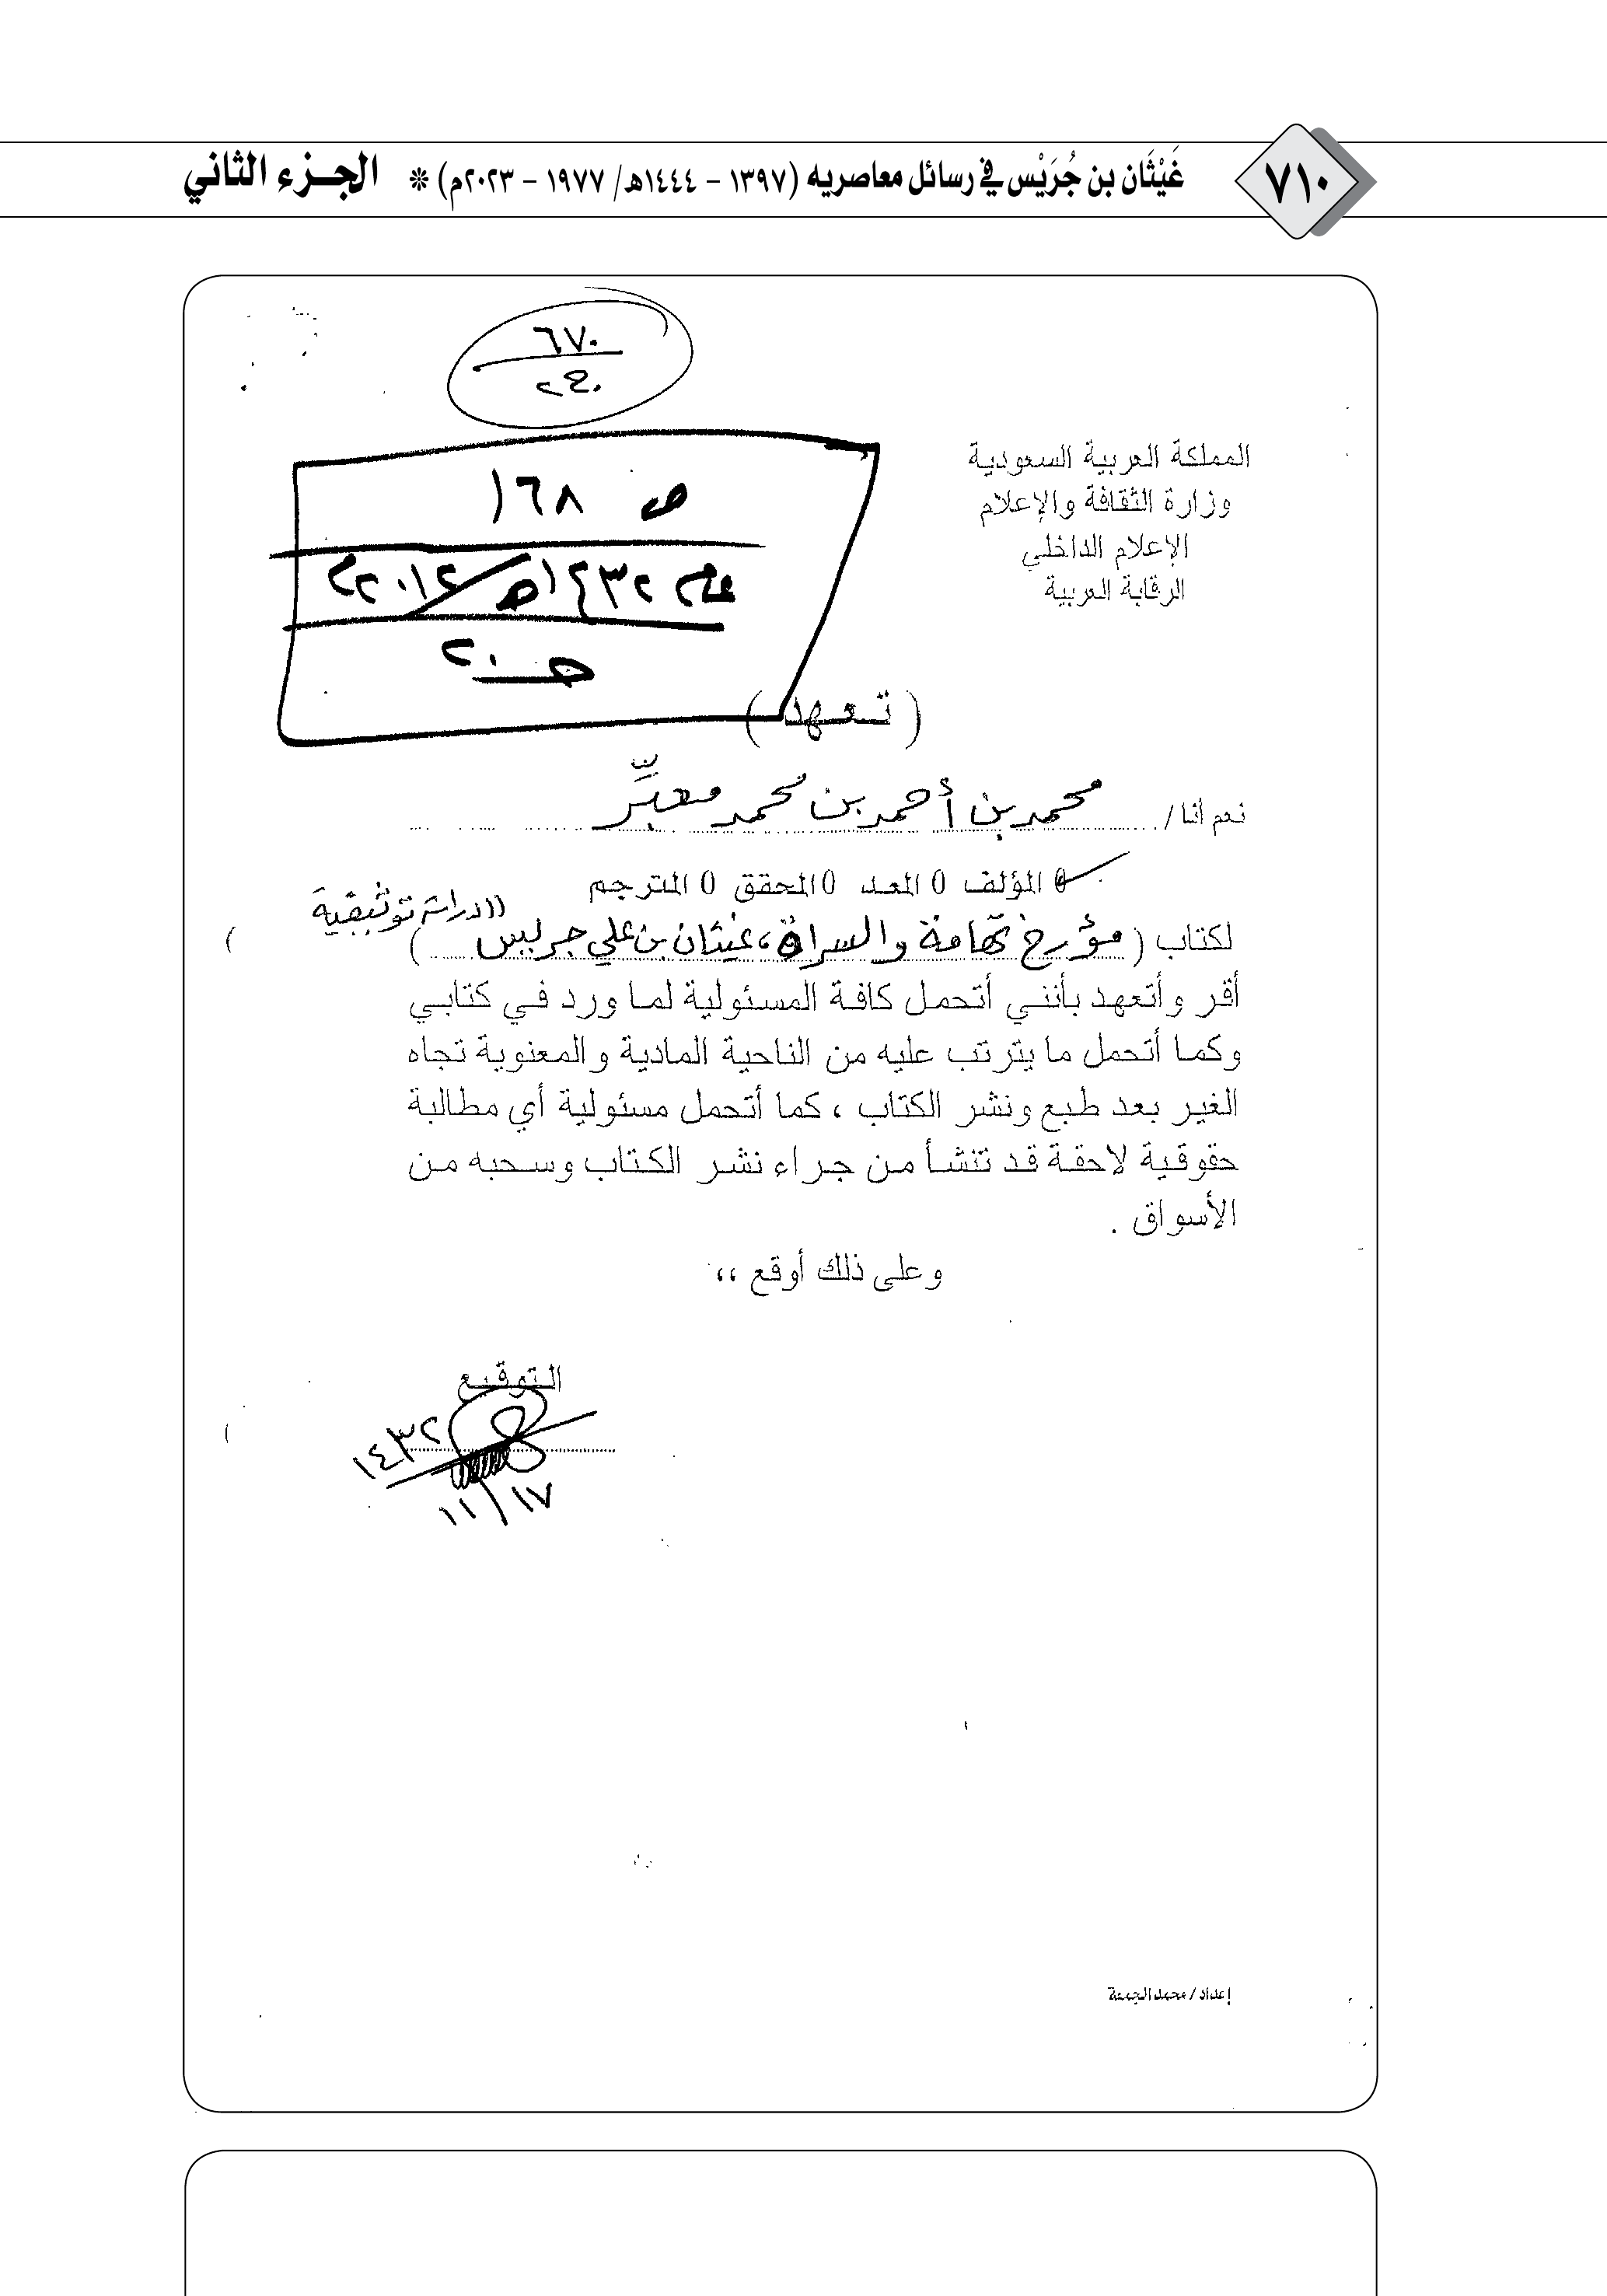 ٧١٠
غَيْثَان بن جُرَيْس في رسائل معاصريه (١٣٩٧ - ١٤٤٤هـ/ ١٩٧٧ - ٢٠٢٣م) * الجـزء الثاني
٦٧٠
المملكة العربية السعودية
وزارة الثقافة والإعلام
الإعلام الداخلي
الرقابة العربية
ص ١٦٨
عام ١٤٣٢هـ/٢٠١٢م
حـ ٢٠
( تـعـهد )
نعم أنا / محمد بن أحمد بن محمد معبِّر
0 المؤلف 0 المعد 0 المحقق 0 المترجم
لكتاب ( مؤرخ تهامة والسراة، غيثان بن علي جريس ((دراسة توثيقية )
أقر وأتعهد بأنني أتحمل كافة المسئولية لما ورد في كتابي
وكما أتحمل ما يترتب عليه من الناحية المادية والمعنوية تجاه
الغير بعد طبع ونشر الكتاب ، كما أتحمل مسئولية أي مطالبة
حقوقية لاحقة قد تنشأ من جراء نشر الكتاب وسحبه من
الأسواق .
وعلى ذلك أوقع ،،
التوقيع
١٤٣٢
١١/١٧
إعداد / محمد الجمعة